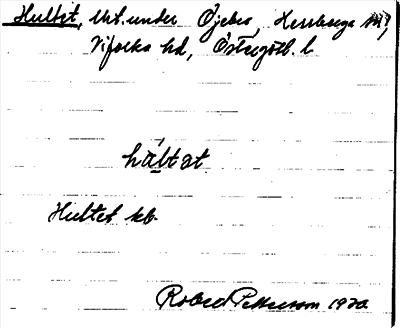 Hultet, Utt. under Öjebro, Herrberga sn,
Vifolka hd, Östergötl. l.
hȧ̀ltət
Hultet kb.
Robert Petterson 1920